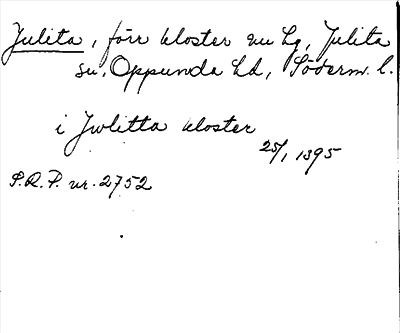 Julita, förr kloster nu Lg, Julita
sn, Oppunda hd, Söderm. l.
i Jwlitta kloster
25/1 1395
S.R.P. nr. 2752